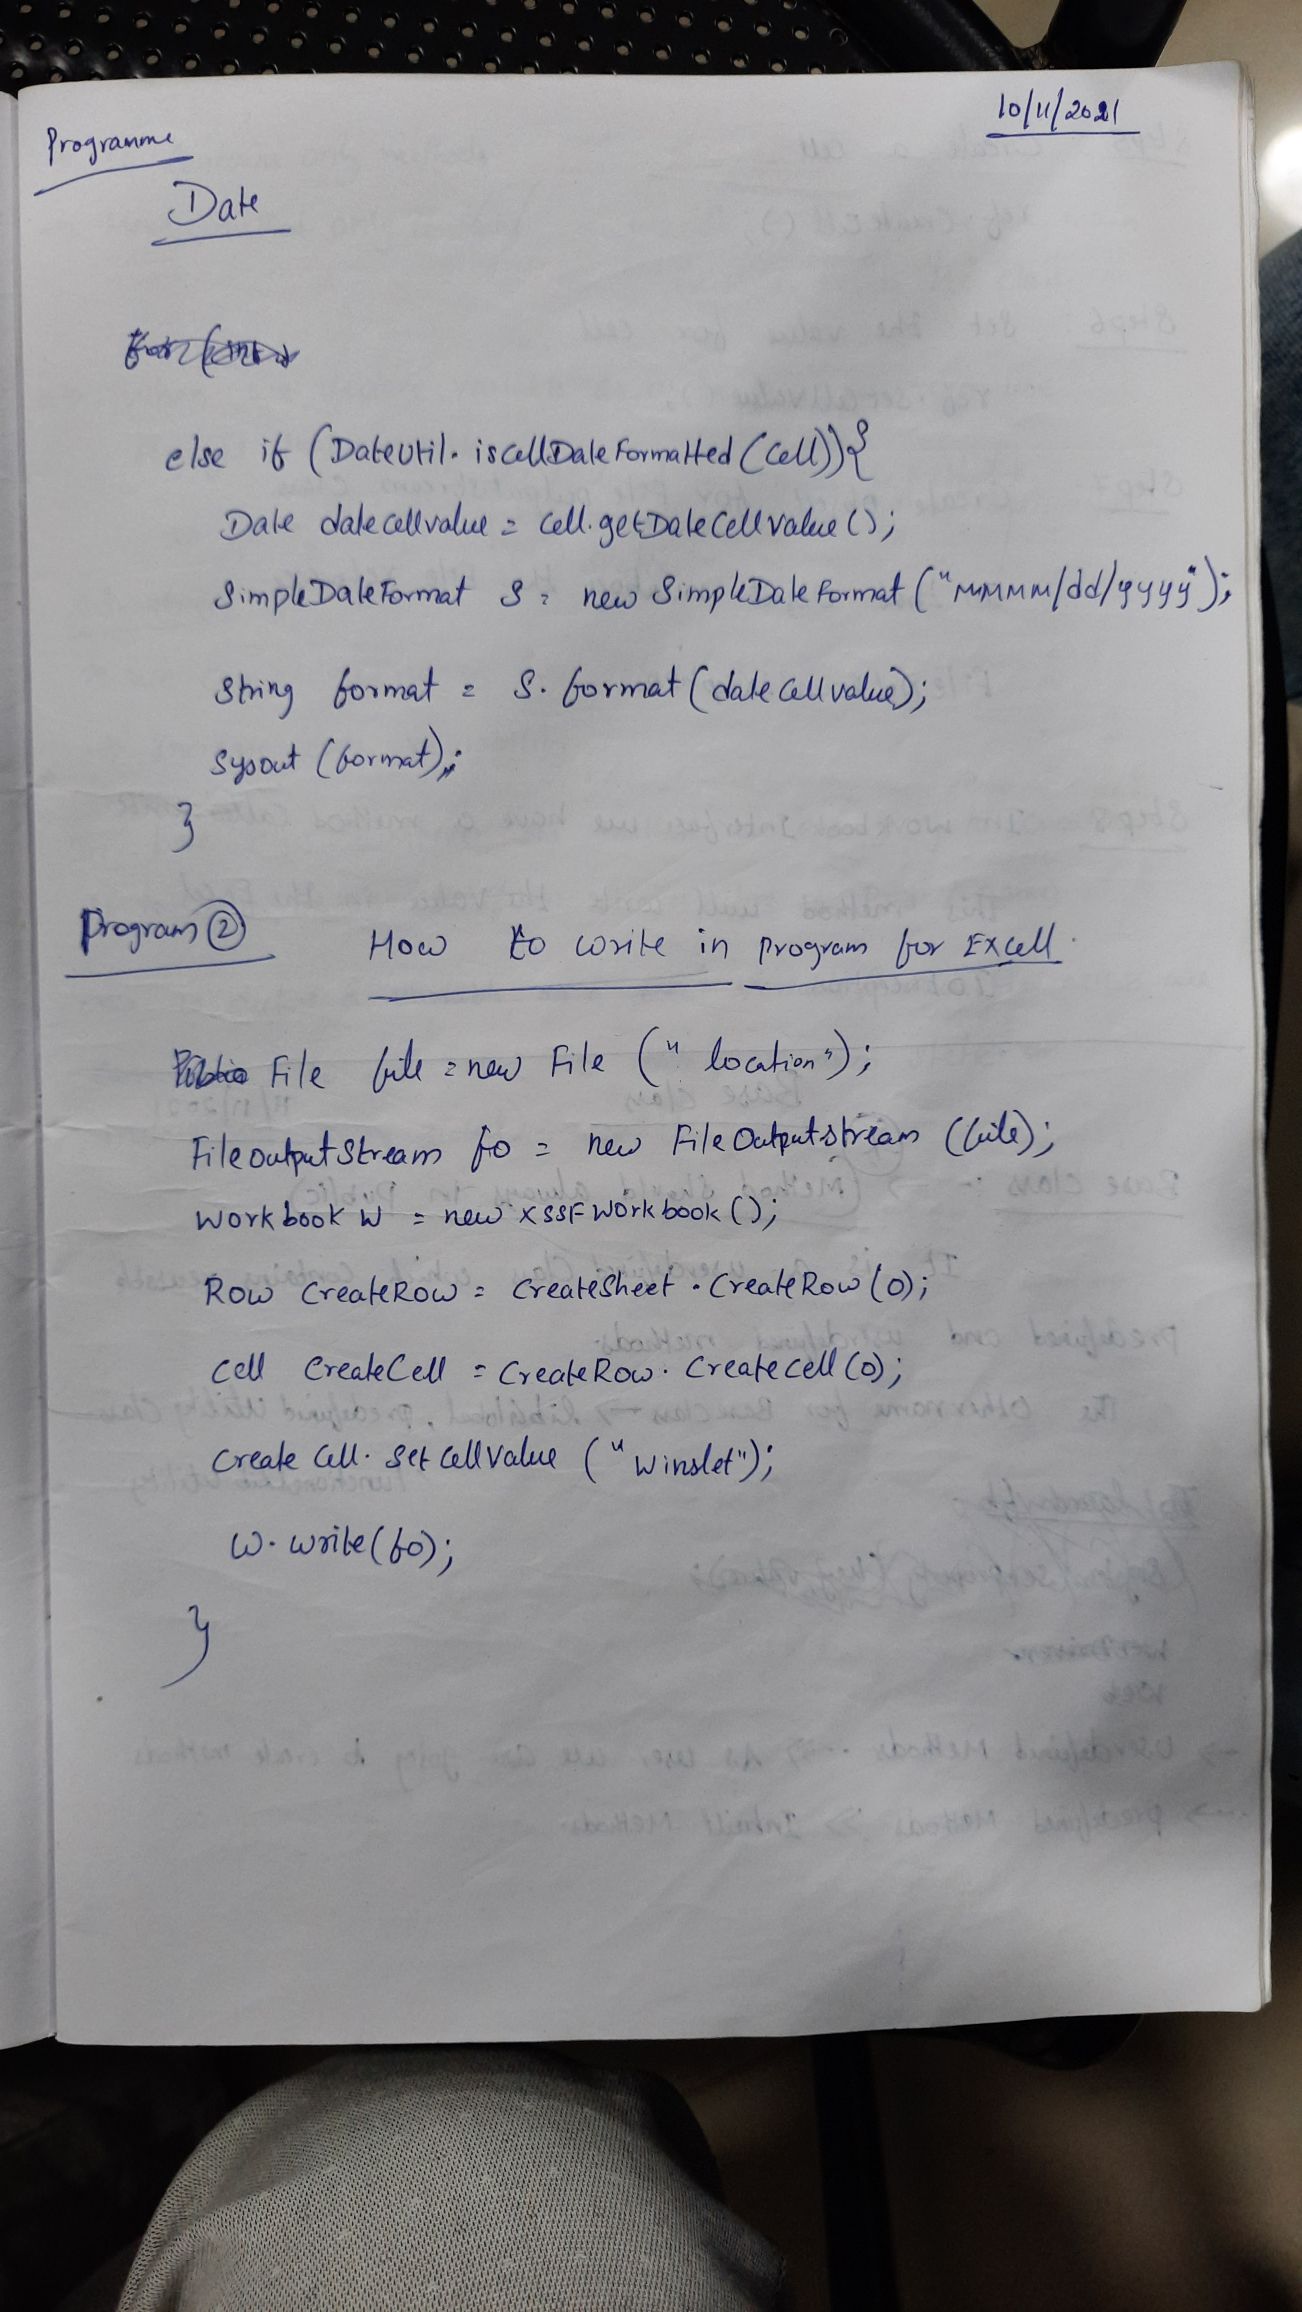 10/11/2021
Programme
Date
else if (DateUtil.iscellDateFormatted(Cell)){
Date datecellvalue = Cell.getDateCellvalue();
SimpleDateFormat S = new SimpleDateFormat("MMMM/dd/yyyy");
String format = S.format(datecellvalue);
Sysout (format);
}
Program ② How to write in program for Excell.
File file = new File (" location");
FileoutputStream fo = new FileOutputstream (file);
Workbook W = new XSSFWorkbook();
Row CreateRow = CreateSheet.CreateRow(0);
Cell CreateCell = CreateRow.Createcell(0);
Create Cell.SetCellValue ("Winslet");
W.write(fo);
}